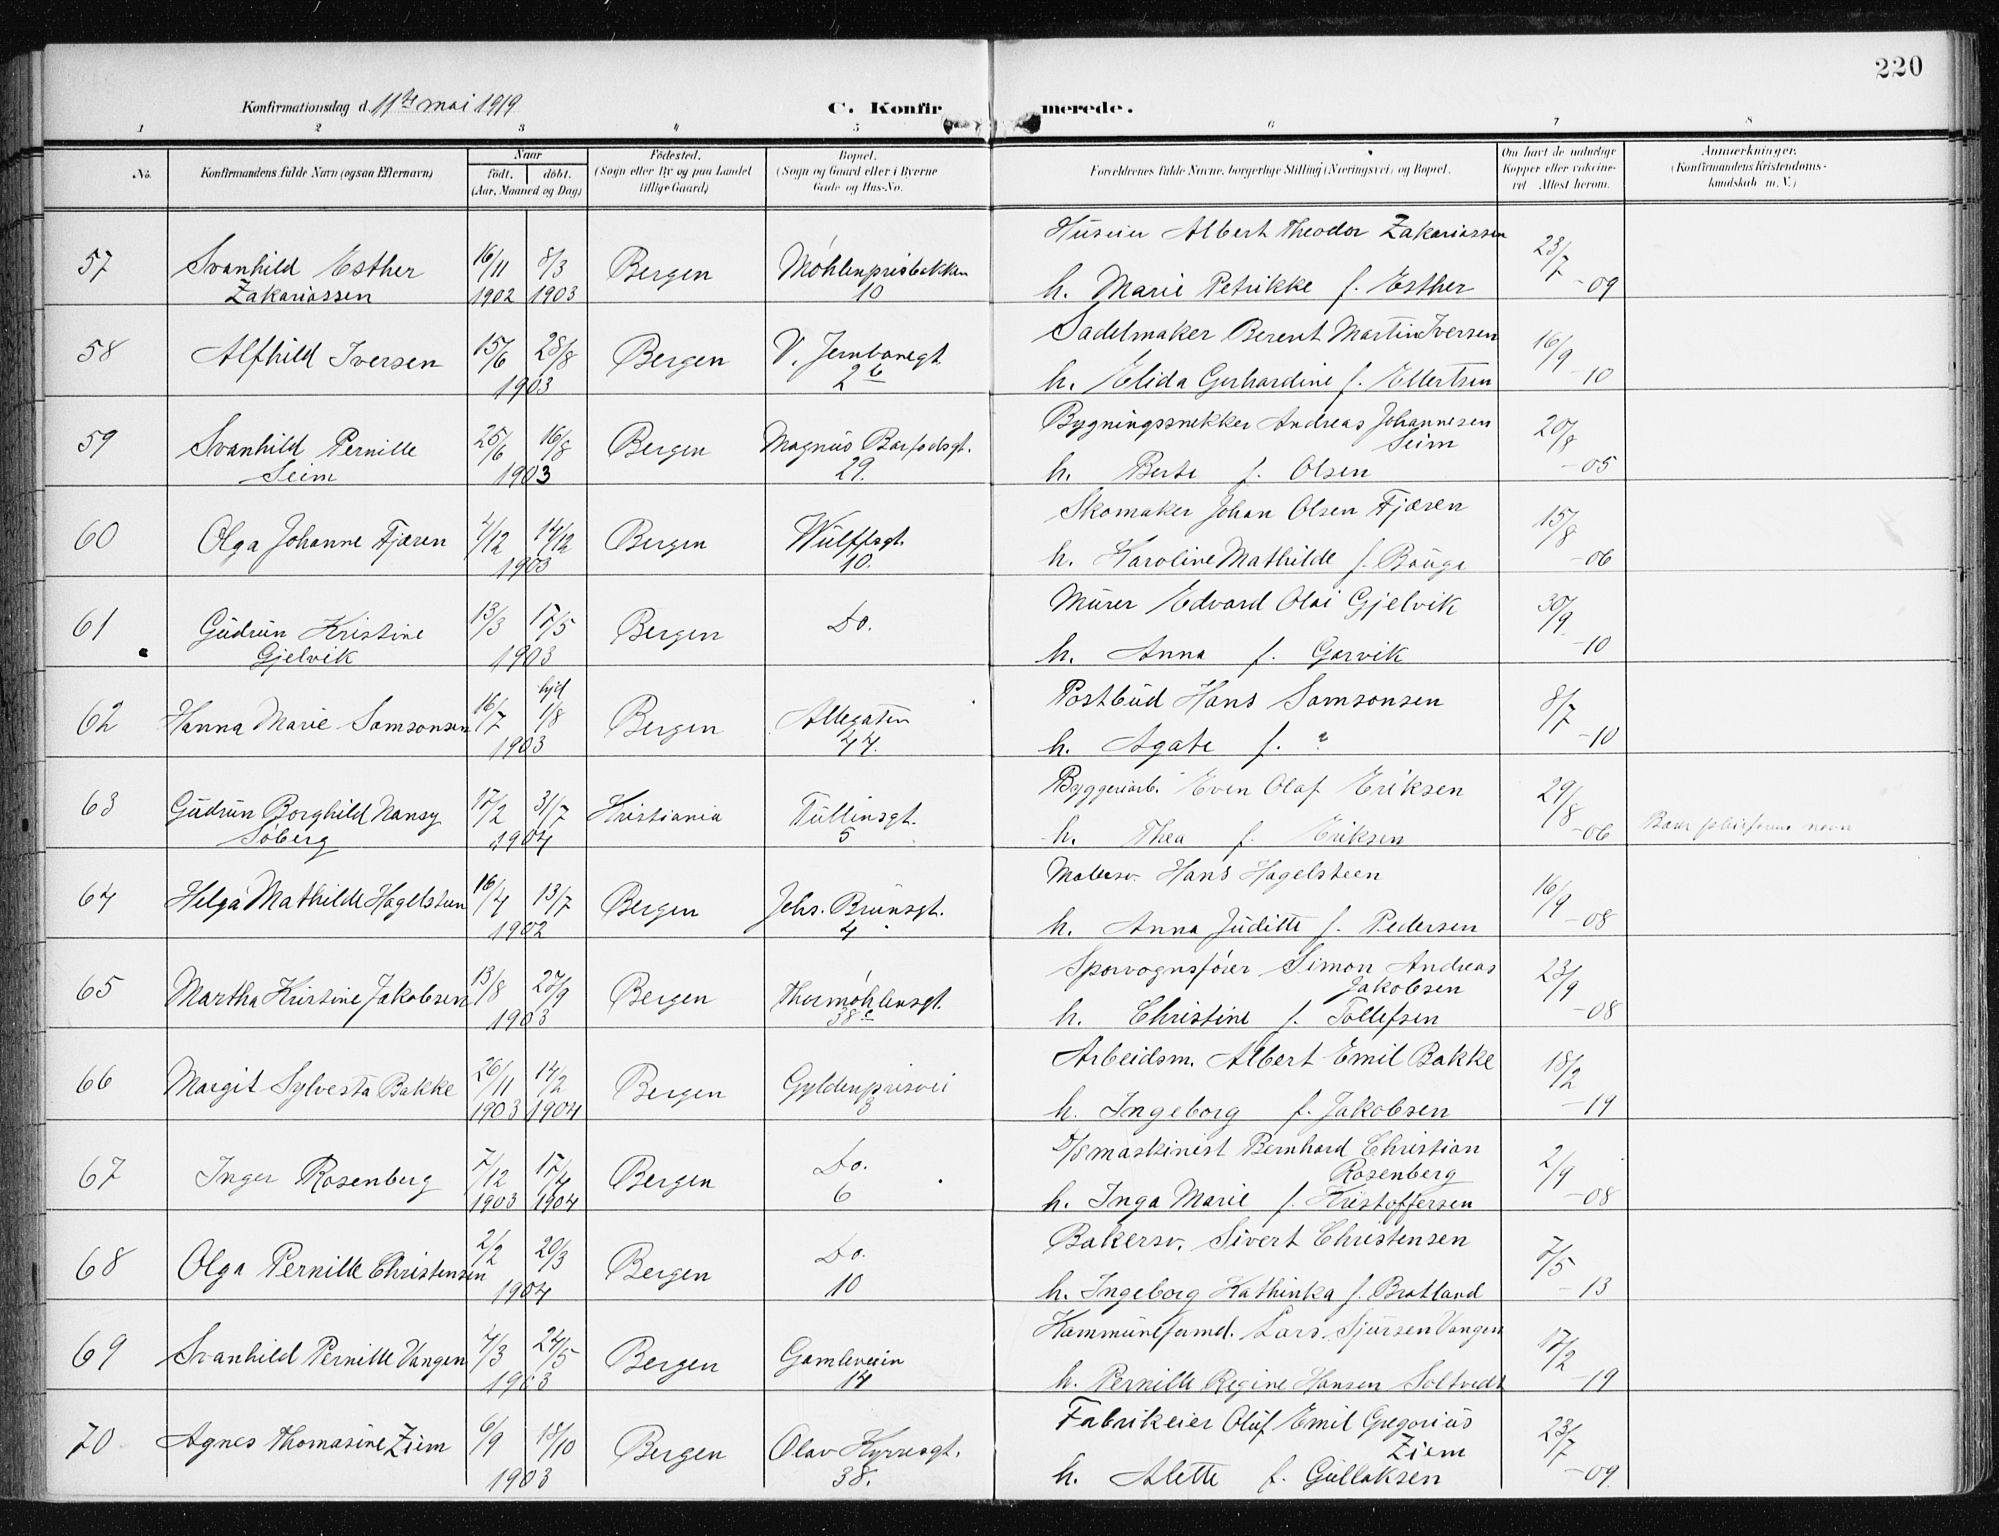 220
Konfirmationsdag d. 11te mai 1919
C. Konfirmerede.
1 2 3 4 5 6 7 8
No. Konfirmandens fulde Navn (ogsaa Efternavn) Naar født. døbt. (Aar, Maaned og Dag) Fødested. (Sogn eller By og paa Landet tillige Gaard) Bopæl. (Sogn og Gaard eller i Byerne Gade og Hus-No. Forældrenes fulde Navne, borgerlige Stilling (Næringsvei) og Bopæl. Om havt de naturlige Kopper eller vaccineret. Attest herom. Anmærkninger. (Konfirmandens Kristendomskundskab m. V.)
57 Svanhild Esther Zakariassen 16/11 1902 8/3 1903 Bergen Møhlenprisbakken 10 Huseier Albert Theodor Zakariassen
h. Marie Petrikke f. Esther 23/7 -09
58 Alfhild Iversen 15/6 28/8 1903 Bergen V. Jernbanegt. 2b Sadelmaker Berent Martin Iversen
h. Elida Gerhardine f. Ellertsen 16/9 -10
59 Svanhild Pernille Seim 25/6 16/8 1903 Bergen Magnus Barfodsgt. 29. Bygningssnekker Andreas Johannesen Seim
h. Berte f. Olsen 20/8 -05
60 Olga Johanne Fjæren 2/12 14/12 1903 Bergen Wulffsgt. 10. Skomaker Johan Olsen Fjæren
h. Karoline Mathilde f. Bauge 15/8 -06
61 Gudrun Kristine Gjelvik 13/3 17/5 1903 Bergen Do. Murer Edvard Olai Gjelvik
h. Anna f. Garvik 30/9 -10
62 Hanna Marie Samsonsen 16/7 hjd 1/8 1903 Bergen Allegaten 44. Postbud Hans Samsonsen
h. Agate f. ? 8/7 -10
63 Gudrun Borghild Nansy Søberg 17/2 31/7 1904 Kristiania Tullinsgt. 5 Byggeriarb. Even Olaf Eriksen
h. Thea f. Eriksen 29/8 -06 Bær navn
64 Helga Mathilde Hagelsteen 16/4 13/7 1902 Bergen Jchs. Brunsgt. 4 Malersv. Hans Hagelsteen
h. Anna Juditte f. Pedersen 16/9 -08
65 Martha Kristine Jakobsen 13/8 27/9 1903 Bergen Thormøhlensgt. 38c Sporvognsfører Simon Andreas Jakobsen
h. Christine f. Tollefsen 23/9 -08
66 Margit Sylvesta Bakke 26/11 1903 14/2 1904 Bergen Gyldenprisvei 3 Arbeidsm. Albert Emil Bakke
h. Ingeborg f. Jakobsen 18/2 -19
67 Inger Rosenberg 7/12 1903 17/4 1904 Bergen Do. 6 D/S maskinist Bernhard Christian Rosenberg
h. Inga Marie f. Kristoffersen 2/9 -08
68 Olga Pernille Christensen 2/2 20/3 1904 Bergen Do. 10 Bakersv. Sivert Christensen
h. Ingeborg Kathinka f. Bratland 7/5 -13
69 Svanhild Pernille Vangen 4/3 24/5 1903 Bergen Gamleveien 14 Kommuneformd. Lars Sjursen Vangen
h. Pernille Regine Hansen Soltvedt 17/2 -19
70 Agnes Thomasine Ziem 6/9 18/10 1903 Bergen Olav Kyrresgt. 38. Fabrikeier Oluf Emil Gregorius Ziem
h. Alette f. Gullaksen 23/7 -09